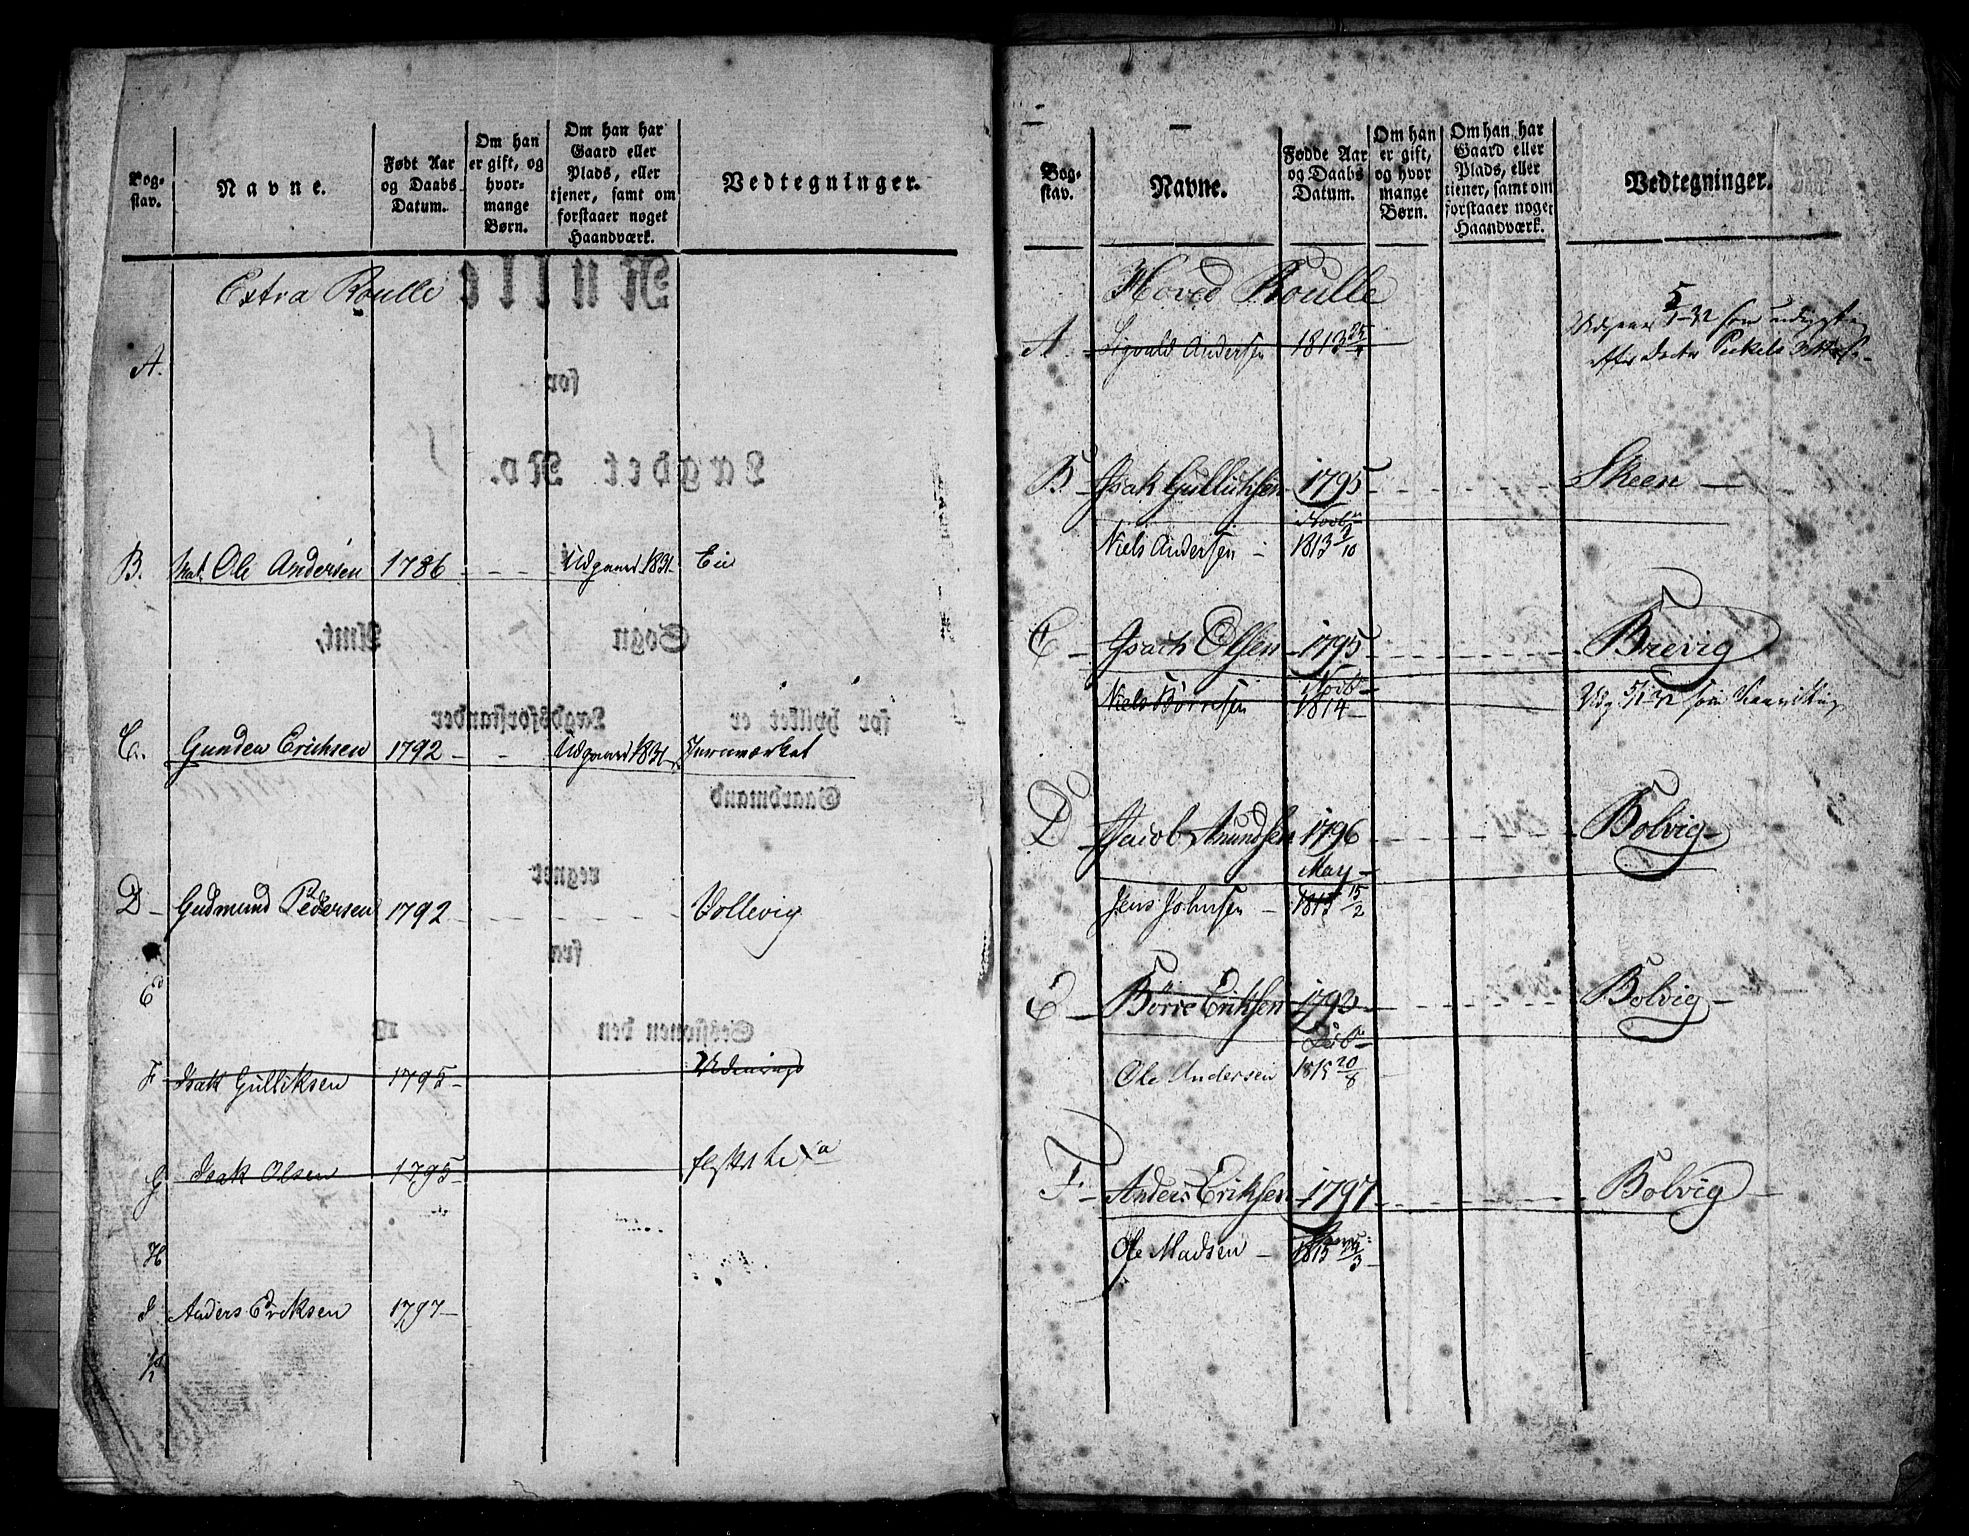 Bog-
stav.
Navne.
Født Aar
og Daabs
Datum.
Om han
er gift, og
hvor-
mange
Børn.
Om han har
Gaard eller
Plads, eller
tjener, samt om
forstaaer noget
Haandværk.
Vedtegninger.
Extra Roulle
A.
B. Nat. Ole Andersen 1786 Udgaaed 1831 Eie
C. Gunden Erichsen 1792 Udgaaed 1831 Jernværket
D Gudmund Pedersen 1792 Vollevig
E
F Isak Gulliksen 1795
G Isak Olsen 1795
H
I Anders Eriksen 1797
K
Bog-
stav.
Navne.
Fødde Aar
og Daabs
Datum.
Om han
er gift,
og hvor
mange
Børn.
Om han har
Gaard eller
Plads, eller
tjener, samt om
forstaaer noget
Haandværk.
Vedtegninger.
Hoved Roulle
A Sigvald Andersen 1813
B Isak Gullichsen 1795 Skeen
Niels Andersen 1813 2/10
C Isach Olsen 1795 Brevig
Niels Börresen 1814
D Jacob Amundsen 1796 Bolvig
May
Jens Johnsen 1815 15/2
E Börre Eriksen 1792 Bolvig
Ole Andersen 1815 20/8
F Anders Eriksen 1797 Bolvig
Ole Madsen 1815 25/3